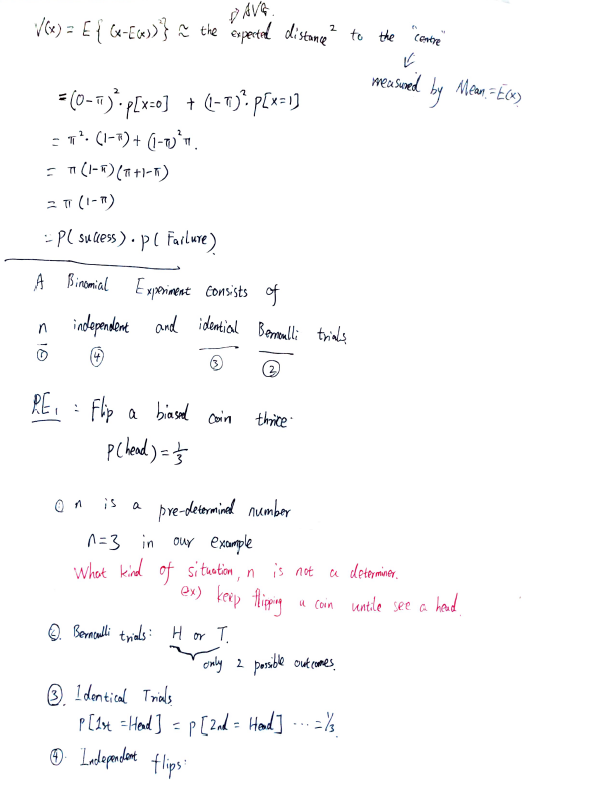 ↗ AVG.
V(x) = E{ (x-E(x))²} ≈ the expected distance² to the "centre"
↙
measured by Mean = E(x)
= (0-π)²· p[x=0] + (1-π)²· p[x=1]
= π²· (1-π) + (1-π)²π.
= π(1-π)(π+1-π)
= π(1-π)
= P( success) · p( Failure)
A Binomial Experiment consists of
n independent and idential Bernoulli trials
① ④ ③ ②
RE₁ : Flip a biased coin thrice.
p(head) = 1/3
① n is a pre-determined number
n=3 in our example
What kind of situation, n is not a determiner.
ex) keep flipping a coin untile see a head.
②. Bernoulli trials: H or T.
only 2 possible outcomes.
③. Identical Trials
P[1st =Head] = p[2nd = Head] ... = 1/3.
④. Independent flips.